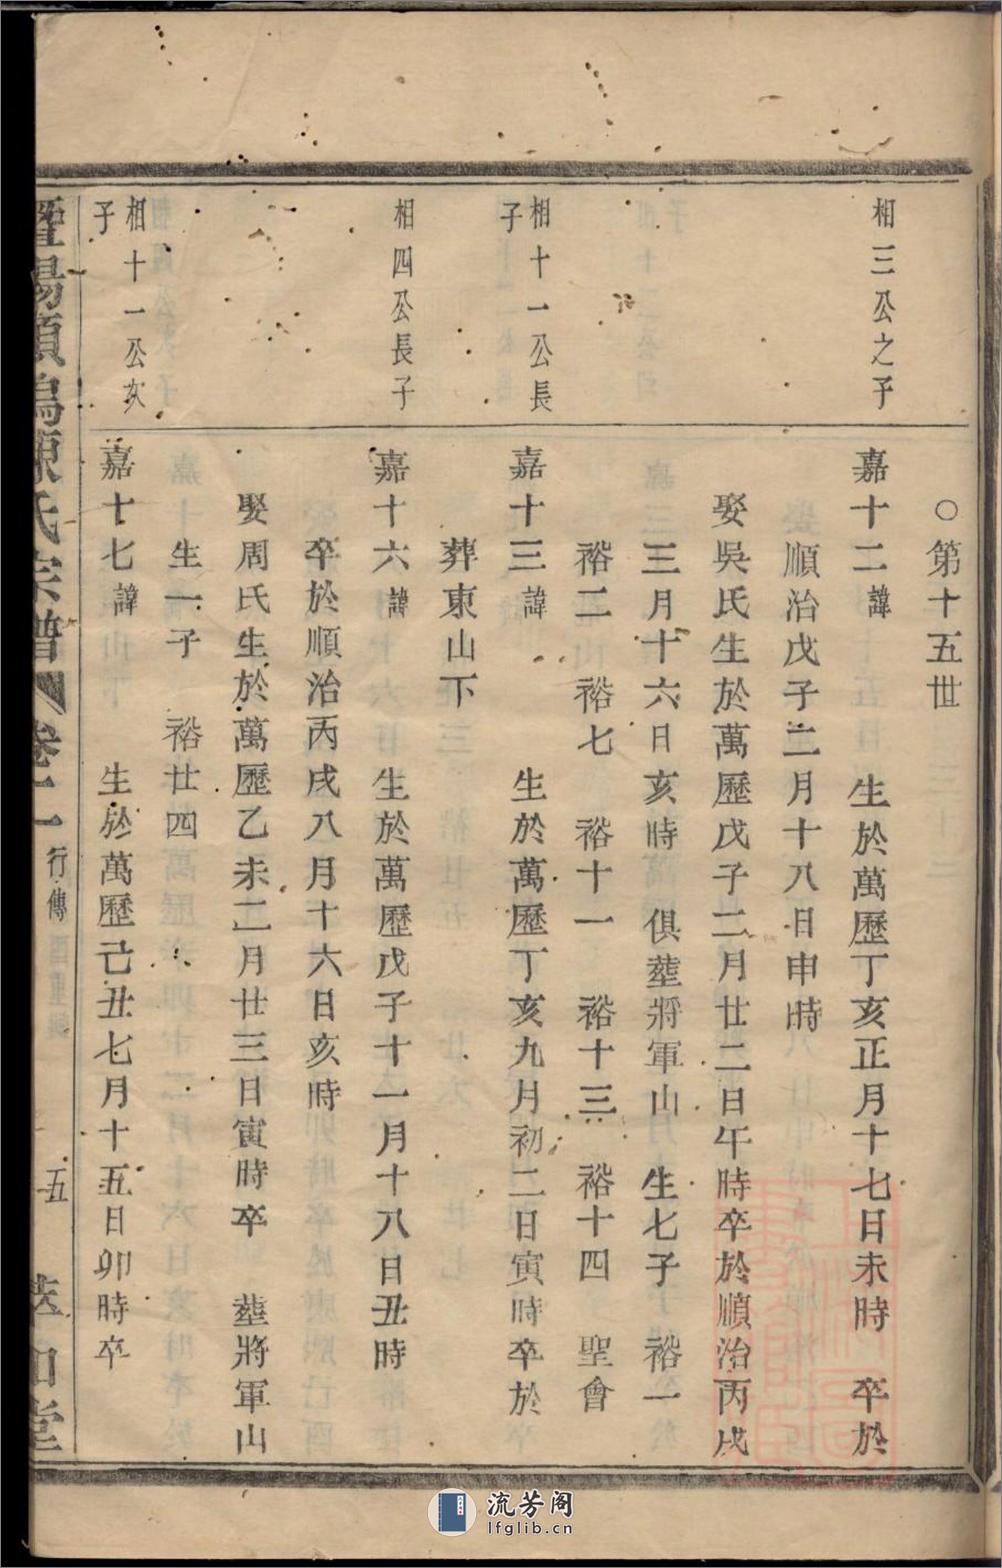 ○第十五世
相三公之子
嘉十二諱 生於萬歷丁亥正月十七日未時 卒於
順治戊子二月十八日申時
娶吳氏生於萬歷戊子二月廿二日午時卒於順治丙戌
三月十六日亥時 俱塟將軍山 生七子 裕一
裕二 裕七 裕十一 裕十三 裕十四 聖會
相十一公長
子
嘉十三諱 生於萬歷丁亥九月初二日寅時卒於
葬東山下
相四公長子
嘉十六諱 生於萬歷戊子十一月十八日丑時
卒於順治丙戌八月十六日亥時
娶周氏生於萬歷乙未二月廿三日寅時卒 塟將軍山
生一子 裕廿四
相十一公次
子
嘉十七諱 生於萬歷己丑七月十五日卯時卒
暨陽 陳氏宗譜 卷二 行傳 五 和堂
流芳阁
lfglib.cn